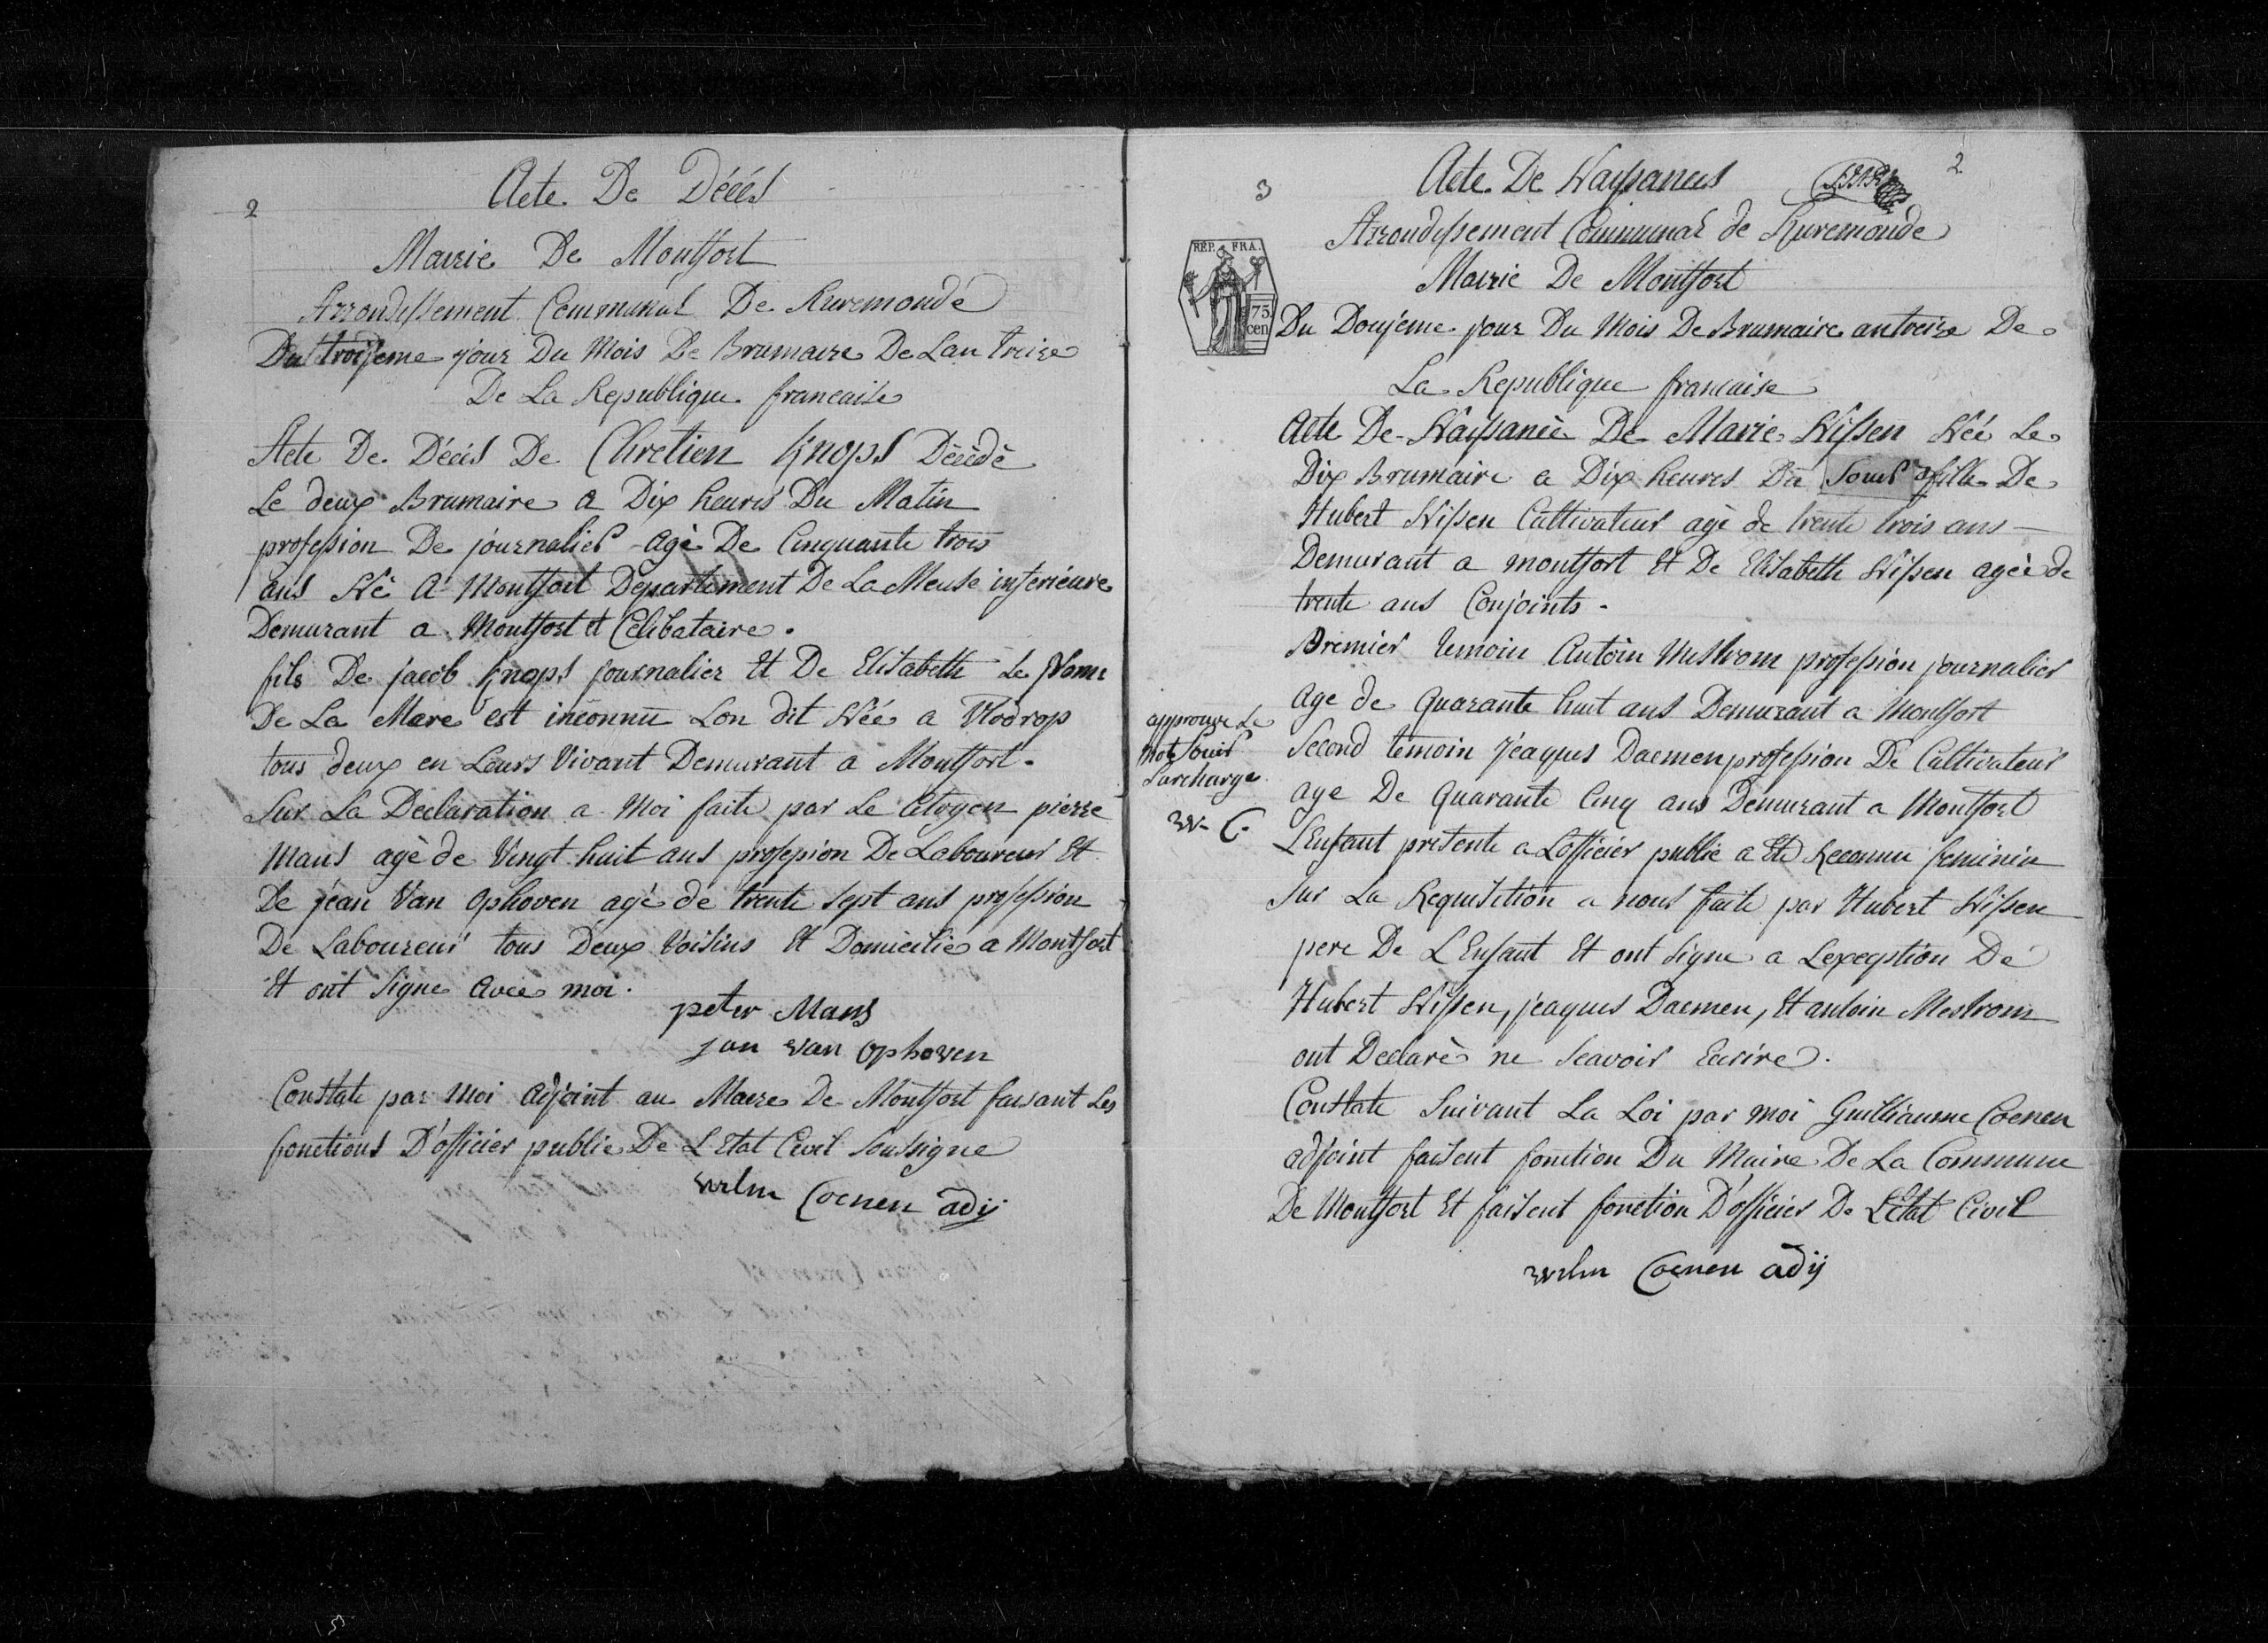 2
Acte De Décés
Mairie De Montfort
Arrondissement Communal De Ruremonde
Du troisieme jour Du Mois De Brumaire De Lan treize
De La Republique francaise
Acte De Décés De Chretien Knops Décédé
Le deux Brumaire a Dix heures Du Matin
profession De journalier agè De Cinquante trois
ans Nè A Montfort Departement De La Meuse inferieure
Demurant a Montfort et Celibataire.
fils De jacob Knops journalier Et De Elisabeth Le Nom
De La Mere est inconnu Lon dit Née a Vlodrop
tous deux en Leurs Vivant Demurant a Montfort.
Sur La Declaration a Moi faite par Le Citoyen pierre
Mans agè de Vingt huit ans profession De Laboureur Et
De jean Van Ophoven agé de trente sept ans profession
De Laboureur tous Deux Voisins Et Domicilie a Montfort
Et ont Signe Avec moi.
peter Mans
jan van ophoven
Constate par Moi Adjoint au Maire De Montfort faisant Les
fonctions D'officier public De L Etat Civil Soussigne
wilm Coenen adij
3
2
Acte De Nayssances
Arrondissement Communal de Ruremonde
Mairie De Montfort
REP. FRA.
75
cen
Du Douzieme jour Du Mois De Brumaire an treize De
La Republique francaise
Acte De Nayssance De Marie Nissen Née Le
Dix Brumaire a Dix heures Du Soir fille De
Hubert Nissen Cultivateur agè de trente trois ans
Demurant a montfort Et De Elisabeth Nissen agèe de
trente ans Conjoints.
Premier temoin Antoin Mestrom profession journalier
age de Quarante huit ans Demurant a Montfort
Second temoin Jeaques Daemen profession De Cultivateur
age De Quarante Cinq ans Demurant a Montfort
L'Enfant presente a Lofficier public a Eté Reconnu feminin
Sur La Requisition a nous faite par Hubert Nissen
pere De L Enfant Et ont Signe a Lexception De
Hubert Nissen, jeaques Daemen, Et antoin Mestrom
ont Declarè ne Scavoir Ecrire.
Constate Suivant La Loi par moi Guilliaume Coenen
adjoint faisent fonction Du Maire De La Commune
De Montfort Et faisent fonction D'officier De L'Etat Civil
wilm Coenen adij
approuve Le
mot Soir
Surcharge
w. C.